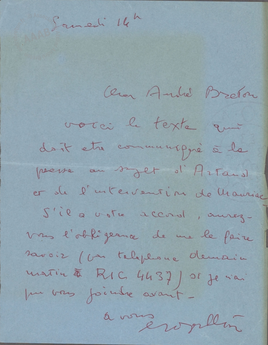 Samedi 14h
Cher André Breton
voici le texte qui
doit être communiqué à la
presse au sujet d'Artaud
et de l'intervention de Mauriac
S'il a votre accord, aurez-
vous l'obligeance de me le faire
savoir (par téléphone demain
matin à RIC 4437) si je n'ai
pu vous joindre avant.
à vous